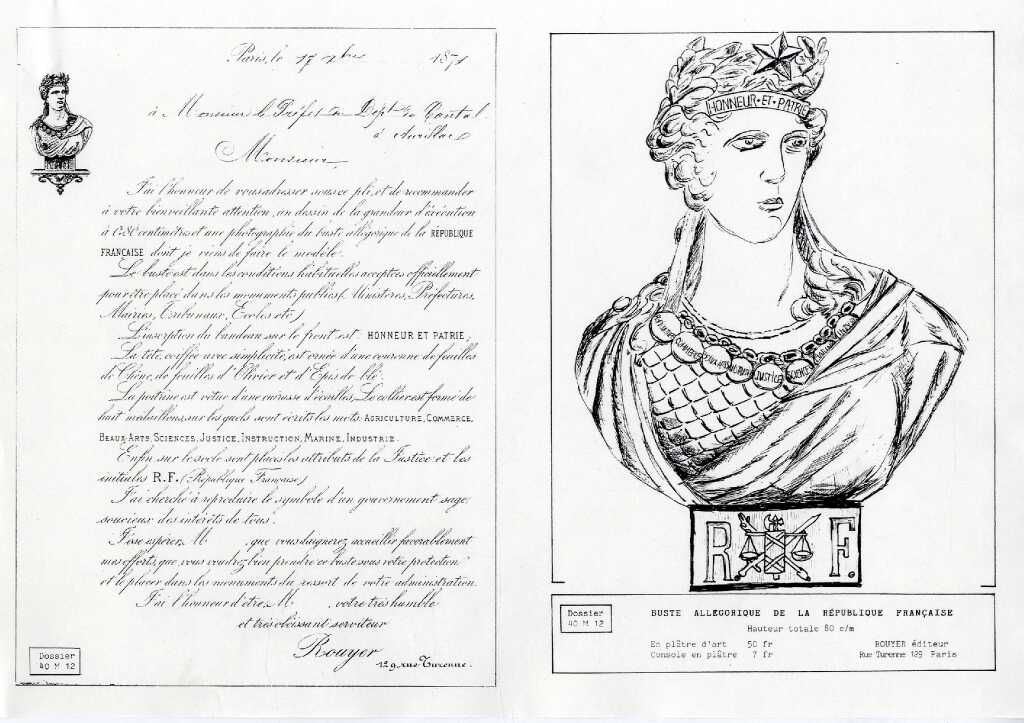 Paris, le 17 xbre 1871
à Monsieur le Préfet du Dépt du Cantal
à Aurillac
Monsieur
J'ai l'honneur de vous adresser sous ce pli, et de recommander
à votre bienveillante attention, un dessin de la grandeur d'éxécution
à 0.80 centimètres et une photographie du buste allégorique de la RÉPUBLIQUE
FRANÇAISE dont je viens de faire le modèle.
Ce buste est dans les conditions habituelles acceptées officiellement
pour être placé dans les monuments publics (Ministères, Préfectures,
Mairies, Tribunaux, Ecoles etc.)
L'inscription du bandeau sur le front est HONNEUR ET PATRIE;
La tête, coiffée avec simplicité, est ornée d'une couronne de feuilles
de Chêne, de feuilles d'Olivier et d'Epis de blé.
La poitrine est vêtue d'une cuirasse d'écailles, Le collier est formé de
huit médaillons, sur les quels sont écrits les mots: AGRICULTURE, COMMERCE,
BEAUX-ARTS, SCIENCES, JUSTICE, INSTRUCTION, MARINE, INDUSTRIE.
Enfin sur le socle sont placés les attributs de la Justice et les
initiales R.F. (République Française)
J'ai cherché à reproduire le symbole d'un gouvernement sage,
soucieux des intérêts de tous.
J'ose espérer, M , que vous daignerez accueillir favorablement
mes efforts, que vous voudrez bien prendre ce buste sous votre protection
et le placer dans les monuments du ressort de votre administration.
J'ai l'honneur d'être, M , votre très humble
et très obéissant serviteur
Rouyer
129, rue Turenne.
Dossier
40 M 12
HONNEUR·ET·PATRIE
COMMERCE
BEAUX ARTS
JUSTICE
SCIENCES
R F.
Dossier
40 M 12
BUSTE ALLEGORIQUE DE LA RÉPUBLIQUE FRANÇAISE
Hauteur totale 80 c/m
En plâtre d'art 50 fr
Console en plâtre 7 fr
ROUYER éditeur
Rue Turenne 129 Paris